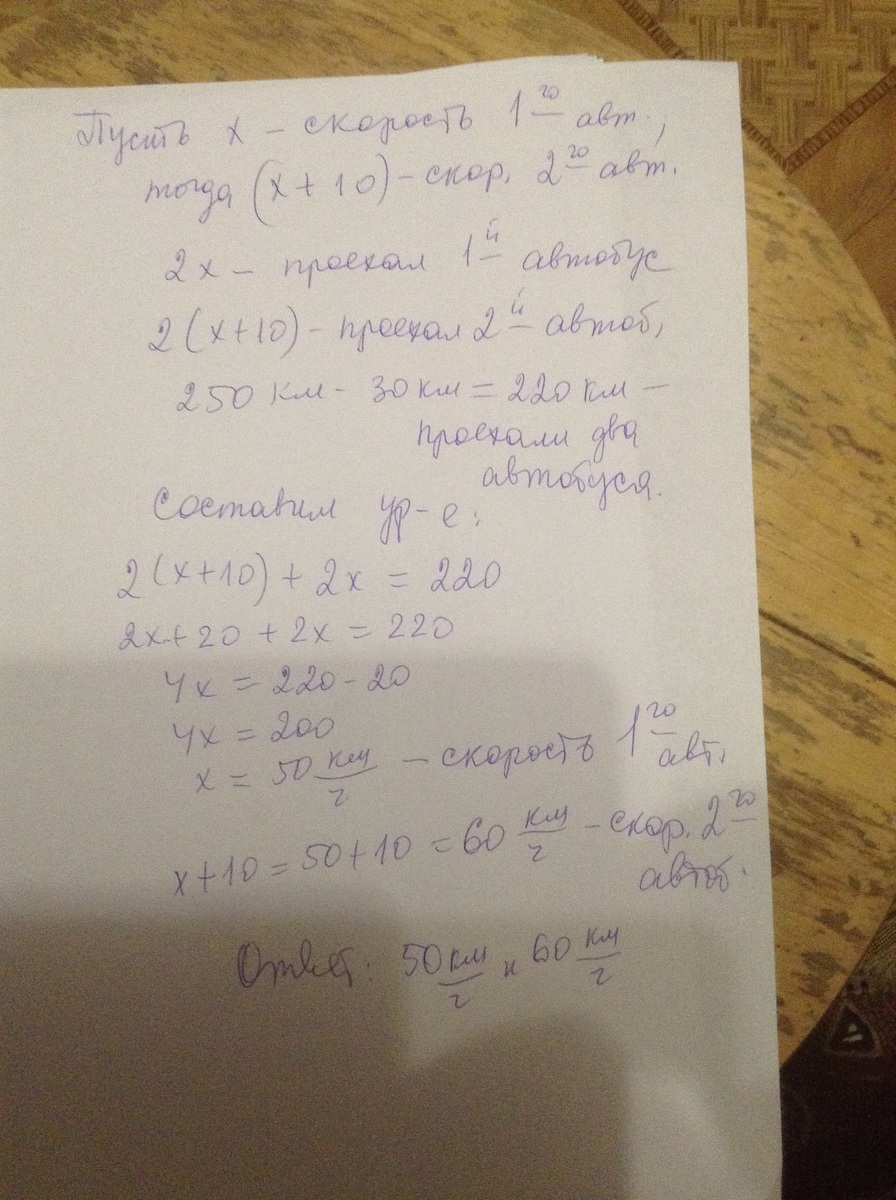 Пусть x - скорость 1го авт.,
тогда (x+10) - скор. 2го авт.
2x - проехал 1й автобус
2(x+10) - проехал 2й автоб,
250 км - 30 км = 220 км -
проехали два
автобуся.
Составим ур-е:
2(x+10) + 2x = 220
2x+20 + 2x = 220
4x = 220-20
4x = 200
x = 50 км/ч - скорость 1го авт.
x+10 = 50+10 = 60 км/ч - скор. 2го
автоб.
Ответ: 50 км/ч и 60 км/ч